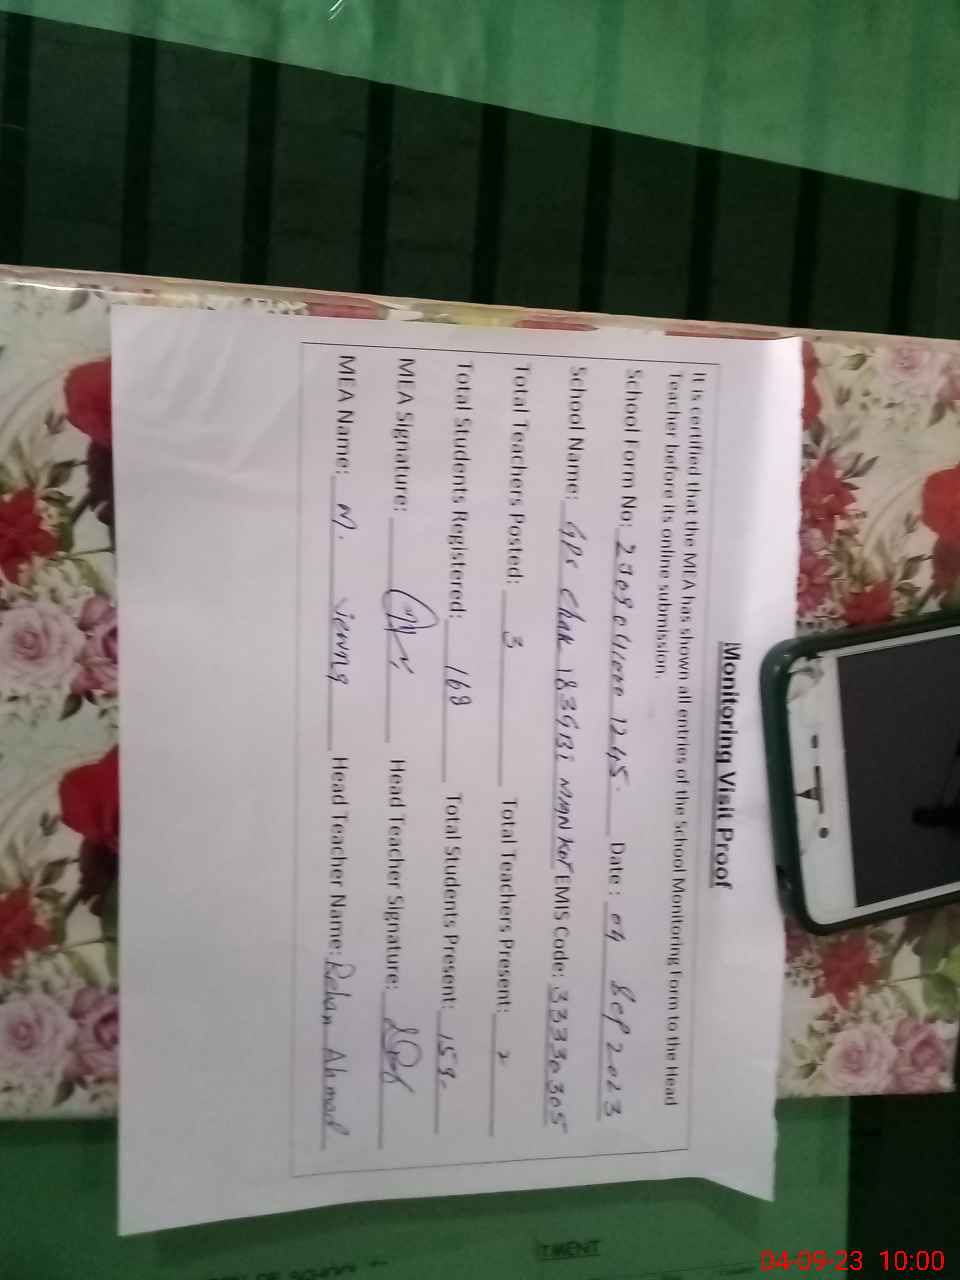 Monitoring Visit Proof
It is certified that the MEA has shown all entries of the School Monitoring Form to the Head
Teacher before its online submission.
School Form No: Date: 04 Sep 2023
School Name: GPS Chak 183GB1 MMN Kot EMIS Code: 33330305
Total Teachers Posted: 3 Total Teachers Present: 2
Total Students Registered: 168 Total Students Present: 159
MEA Signature: Head Teacher Signature:
MEA Name: M. Head Teacher Name: Rehan Ahmad
TMENT
04-09-23 10:00